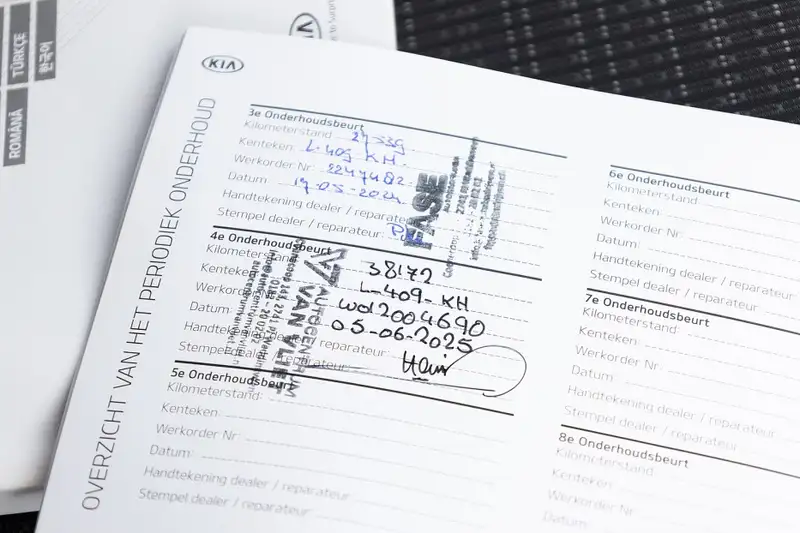 ROMÂNĂ
TÜRKÇE
한국어
KIA
OVERZICHT VAN HET PERIODIEK ONDERHOUD
3e Onderhoudsbeurt
Kilometerstand
Kenteken: L-409 KH
Werkorder Nr.: 2247482
Datum
Handtekening dealer / reparateur
Stempel dealer / reparateur:
FASE
4e Onderhoudsbeurt
Kilometerstand 38172
Kenteken L-409-KH
Werkorder wo12004690
Datum: 05-06-2025
Handtekening / reparateur
Stempel dealer / reparateur
AUTOCENTRUM
VAN VLIET
5e Onderhoudsbeurt
Kilometerstand:
Kenteken:
Werkorder Nr.:
Datum:
Handtekening dealer / reparateur
Stempel dealer / reparateur:
6e Onderhoudsbeurt
Kilometerstand
Kenteken:
Werkorder Nr.:
Datum:
Handtekening dealer / reparateur
Stempel dealer / reparateur:
7e Onderhoudsbeurt
Kilometerstand:
Kenteken:
Werkorder Nr.
Datum:
Handtekening dealer / reparateur
Stempel dealer / reparateur:
8e Onderhoudsbeurt
Kilometerstand
Kenteken:
Werkorder Nr.
Datum: